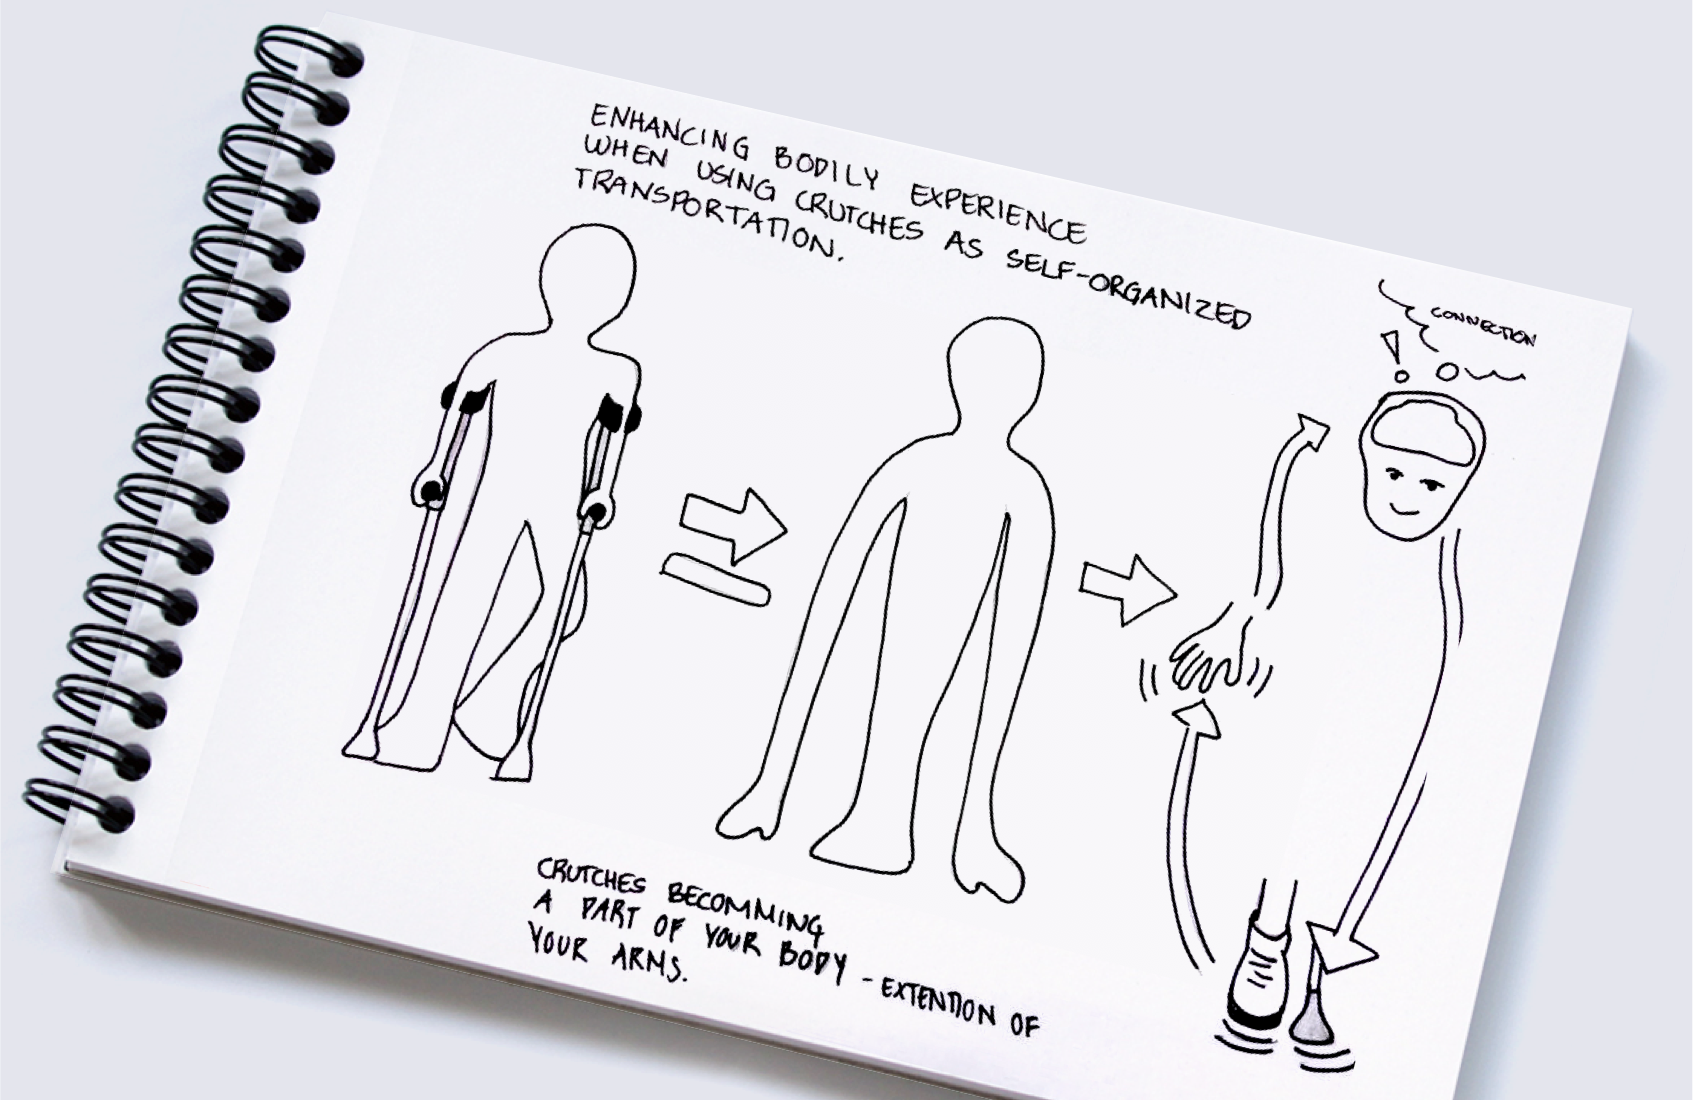 ENHANCING BODILY EXPERIENCE
WHEN USING CRUTCHES AS SELF-ORGANIZED
TRANSPORTATION.
CONNECTION
CRUTCHES BECOMMING
A PART OF YOUR BODY - EXTENTION OF
YOUR ARMS.